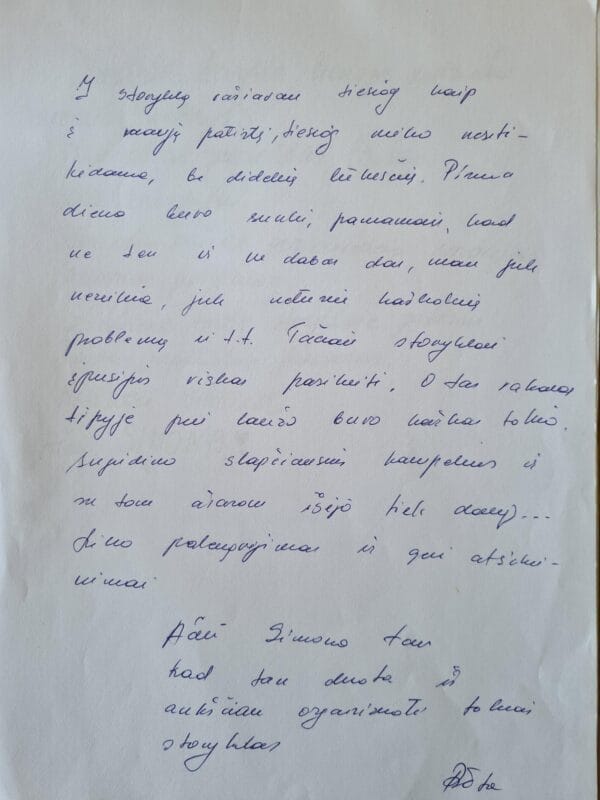 Į stovyklą važiavau tiesiog kaip
į naują patirtį, tiesiog nieko nesiti-
kėdama, be didelių lūkesčių. Pirma
diena buvo sunki, pamaniau, kad
ne ten ir ne dabar dar, man juk
nereikia, juk neturiu kažkokių
problemų ir t.t. Tačiau stovyklai
įpusėjus viskas pasikeitė. O tas vakaras
tipyje prie laužo buvo kažkas tokio.
Sugidino slapčiausius kampelius ir
su tom ašarom išėjo tiek daug...
palengvėjimas ir geri atsimi-
nimai
Ačiū Simono tau
kad tau duota iš
aukščiau organizuoti tokias
stovyklas